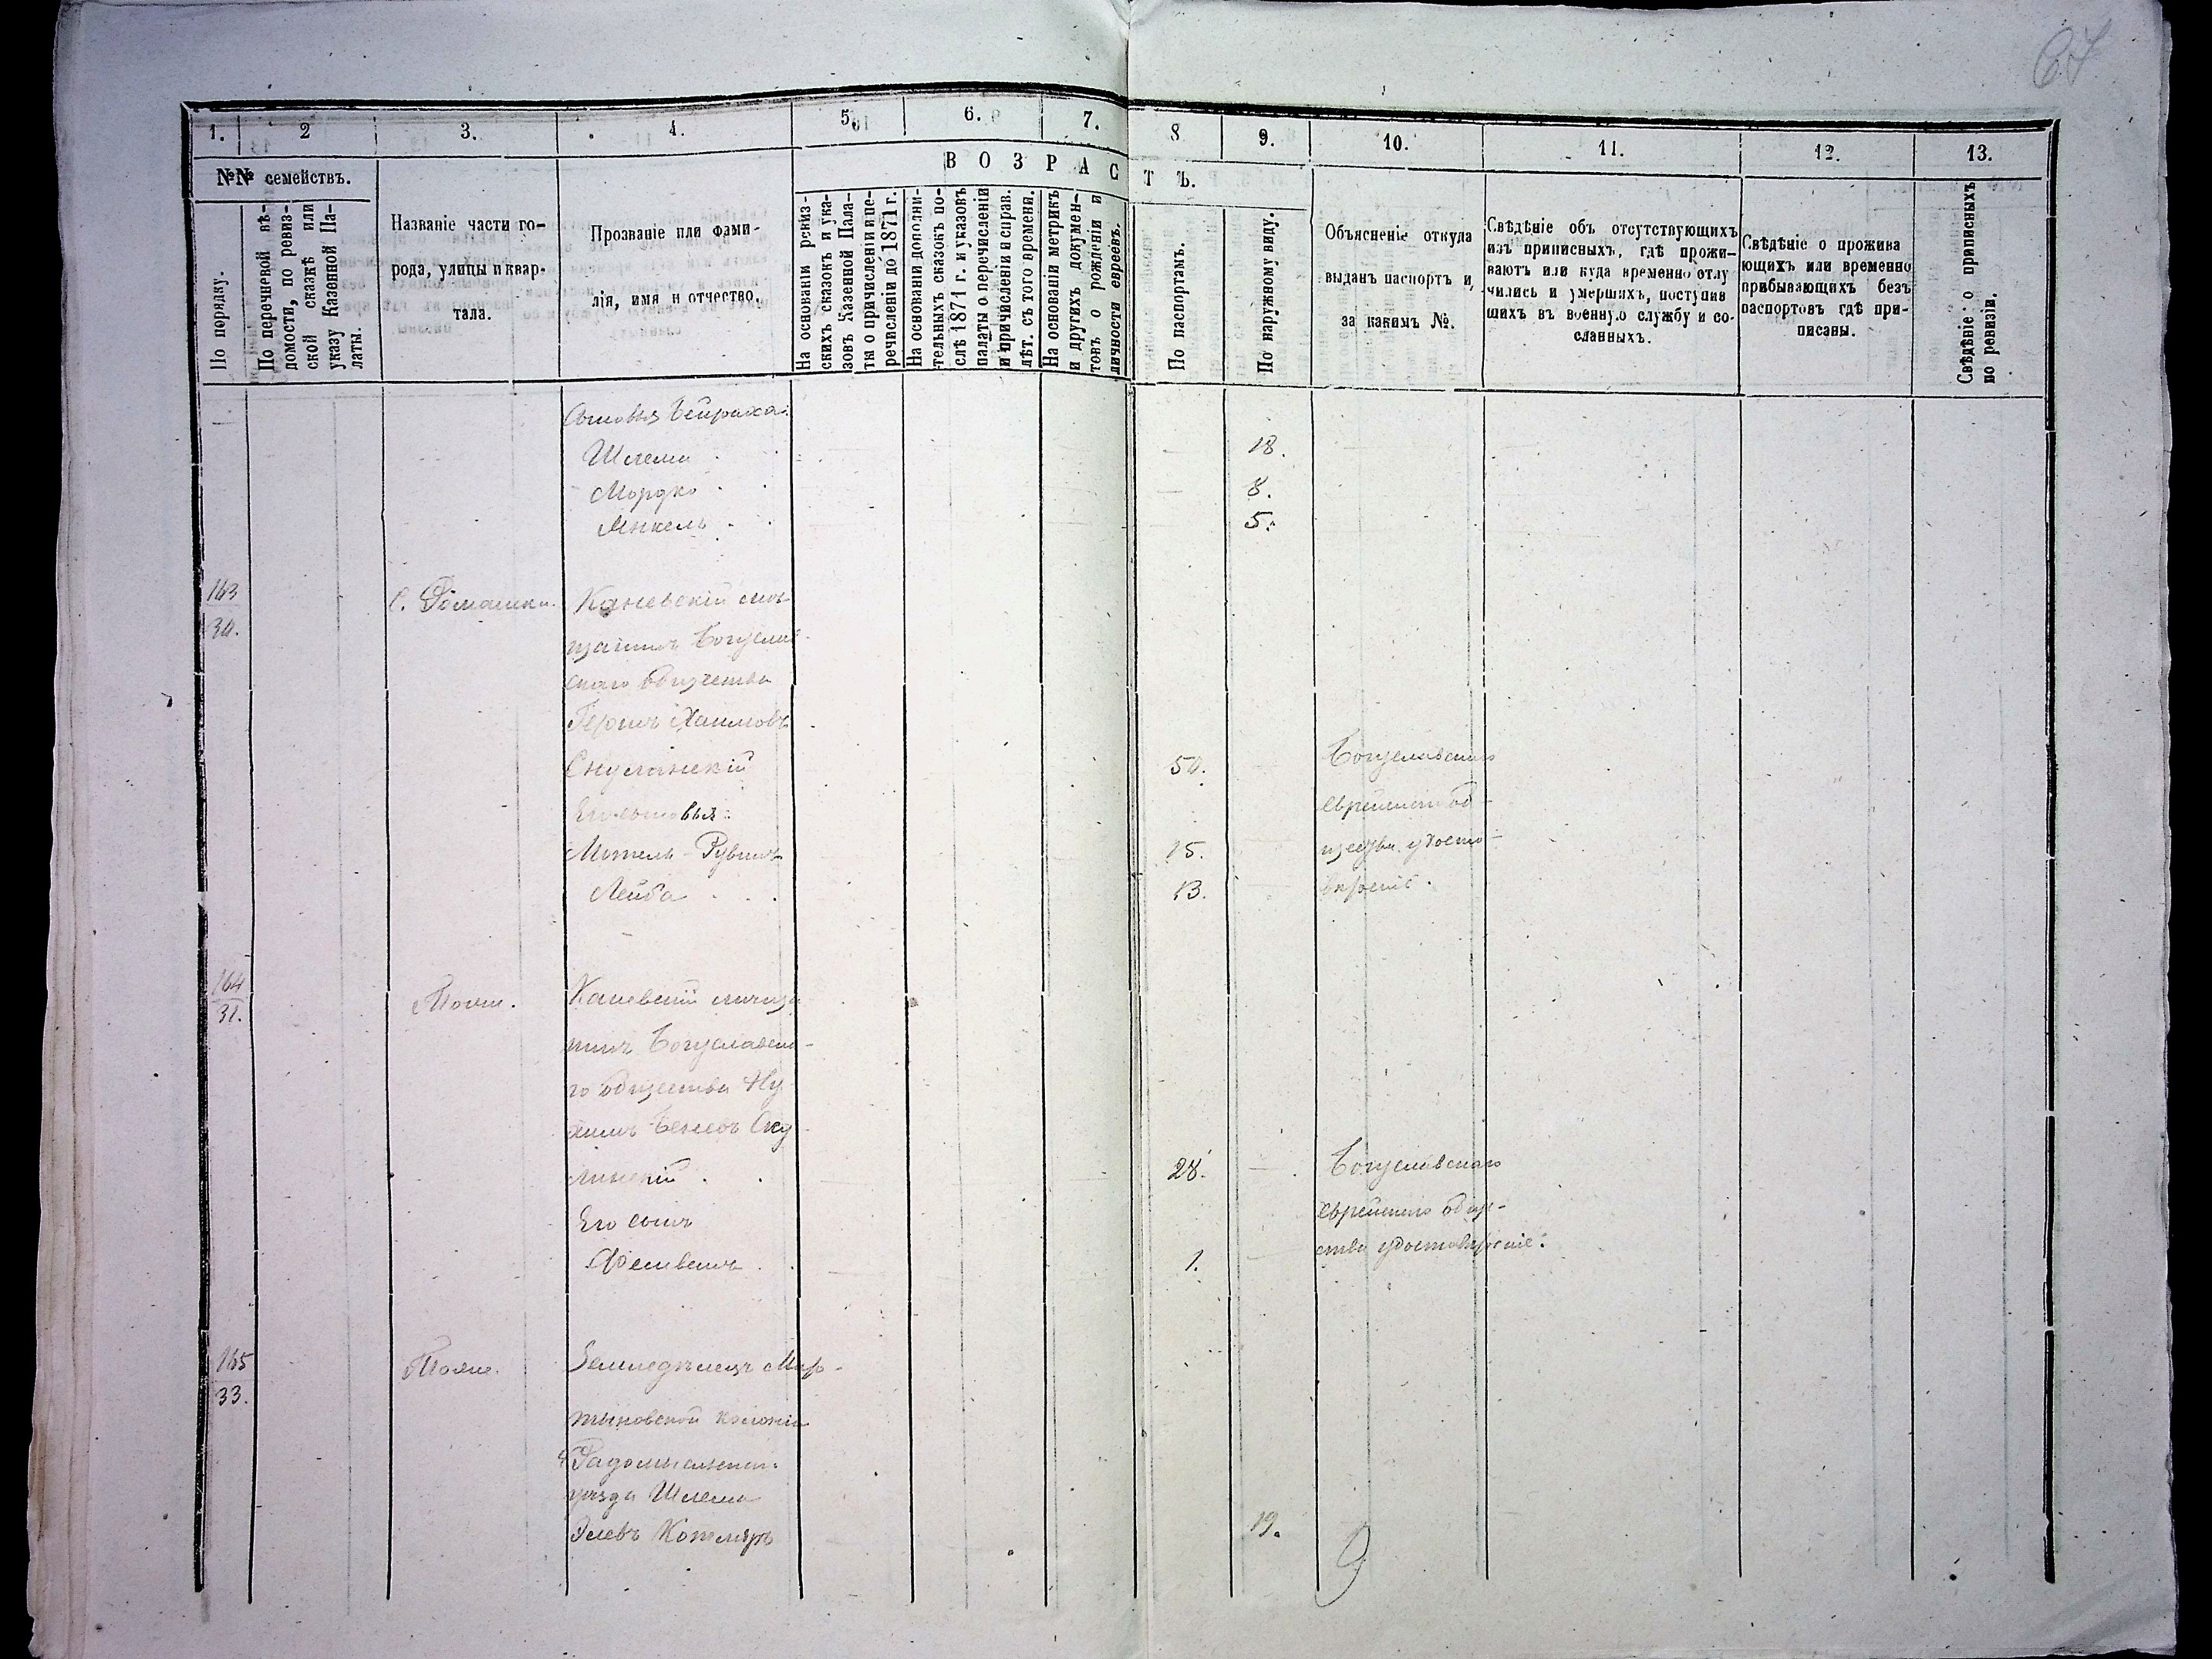 67
1. 2 3. 4. 5. 6. 7. 8 9. 10. 11. 12. 13.
№№ семействъ.
По порядку.
По перечневой вѣ-
домости, по ревиз-
ской сказкѣ или
указу Казенной Па-
латы.
Названіе части го-
рода, улицы и квар-
тала.
Прозваніе или фами-
лія, имя и отчество.
ВОЗРАСТЪ.
На основаніи ревиз-
скихъ сказокъ и ука-
зовъ Казенной Пала-
ты о причисленіи и пе-
речисленіи до 1871 г.
На основаніи дополни-
тельныхъ сказокъ по-
слѣ 1871 г. и указовъ
палаты о перечисленіи
и причисленіи и справ.
лѣт. съ того времени.
На основаніи метрикъ
и другихъ докумен-
товъ о рожденіи и
личности евреевъ.
По паспортамъ.
По наружному виду.
Объясненіе откуда
выданъ паспортъ и
за какимъ №.
Свѣдѣніе объ отсутствующихъ
изъ приписныхъ, гдѣ прожи-
ваютъ или куда временно отлу
чились и умершихъ, поступив
шихъ въ военную службу и со-
сланныхъ.
Свѣдѣніе о прожива
ющихъ или временно
прибывающихъ безъ
паспортовъ гдѣ при-
писаны.
Свѣдѣніе о приписныхъ
по ревизіи.
Сыновья Бейраха:
Шлема 18.
Мордко 8.
Янкель 5.
163 С. Ромашки. Каневскій мѣ-
30.
щанинъ Богуслав-
скаго общества
Гершъ Хаимовъ
Скулянскій 50. Богуславскаго
Его сыновья: еврейскаго об-
Мотель-Рувинъ 15. щества удосто-
Лейба 13. вѣреніе.
164 Тоже. Каневскій мѣща
31.
нинъ Богуславска-
го общества Ну-
химъ Беневъ Ску
лянскій 28. Богуславскаго
Его сынъ еврейскаго обще-
ства удостовѣреніе.
1.
165 Тоже. Земледѣлецъ Мар-
33.
тыновской колоніи
Радомысльскаго
уѣзда Шлема
Элевъ Котляръ 19.